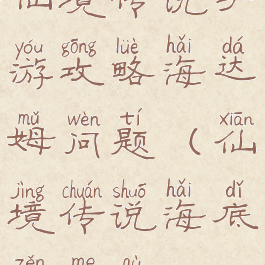 仙境传说手
yóu gōng lüè hǎi dá
游攻略海达
mǔ wèn tí xiān
姆问题(仙
jìng chuán shuō hǎi dǐ
境传说海底
zěn me qù